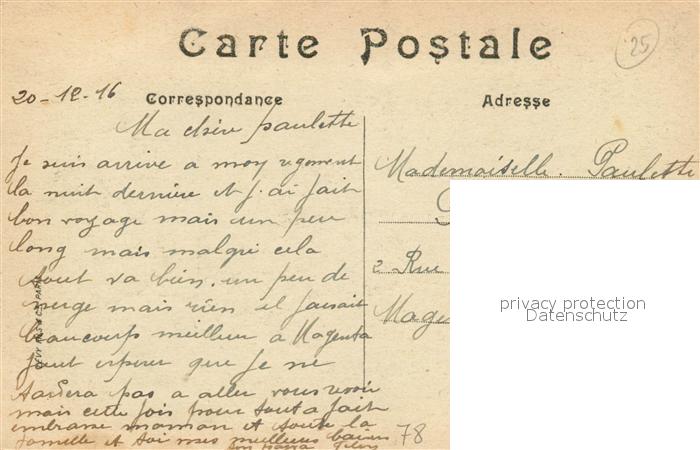 Carte Postale
25
20-12-16
Correspondance
Adresse
Ma chère paulette
Je suis arrive a mon regiment
la nuit dernière et j'ai fait
bon voyage mais un peu
long mais malgre cela
tout va bien. un peu de
neige mais rien il faisait
beaucoup meilleur a Magenta
faut esperer que je ne
tardera pas a aller vous revoir
mais cette fois pour tout a fait
embrasse maman et toute la
famille et toi mes meilleurs baisers
Ton
Mademoiselle. Paulette
2 Rue
Mage
78
LEVY FILS & Cie PARIS
privacy protection
Datenschutz